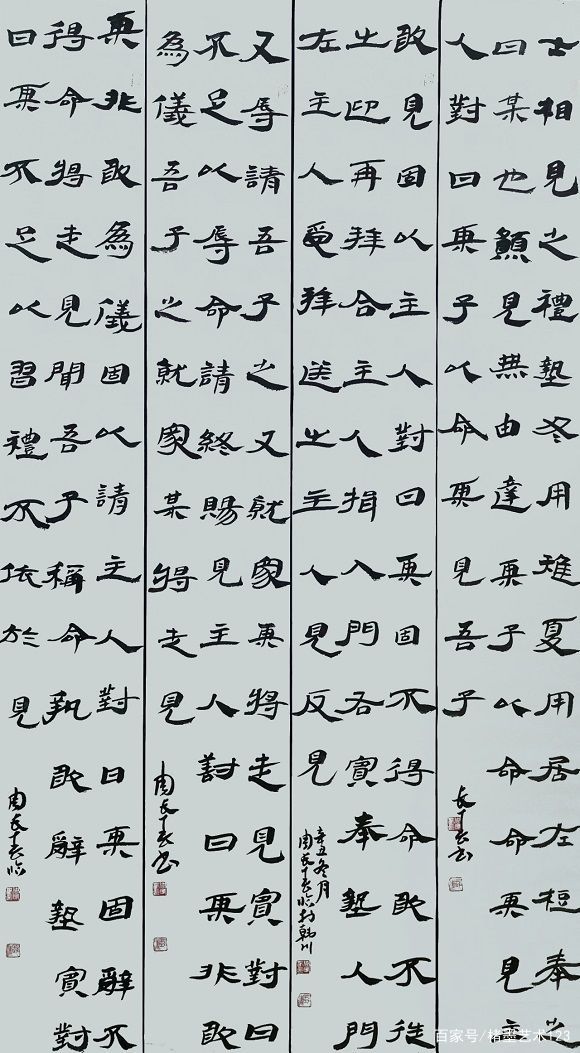 士相見之禮墊冬用雉夏用居左脰奉之
曰某也願見無由達某子以命命某見主
人對曰某子以命某見吾子
敢見固以主人對曰某固不得命敢不從
之迎再拜合主人揖入門右賓奉墊人門
左主人受拜送之主人見反見
辛丑冬月
又辱請吾子之又就家某將走見賓對曰
不足以辱命請終賜見主人對曰某非敢
為儀吾子之就家某將走見
某非敢為儀固以請主人對曰某固辭不
得命將走見聞吾子稱命執敢辭墊賓對
曰某不足以習禮不依於見
百家号/楮墨艺术123